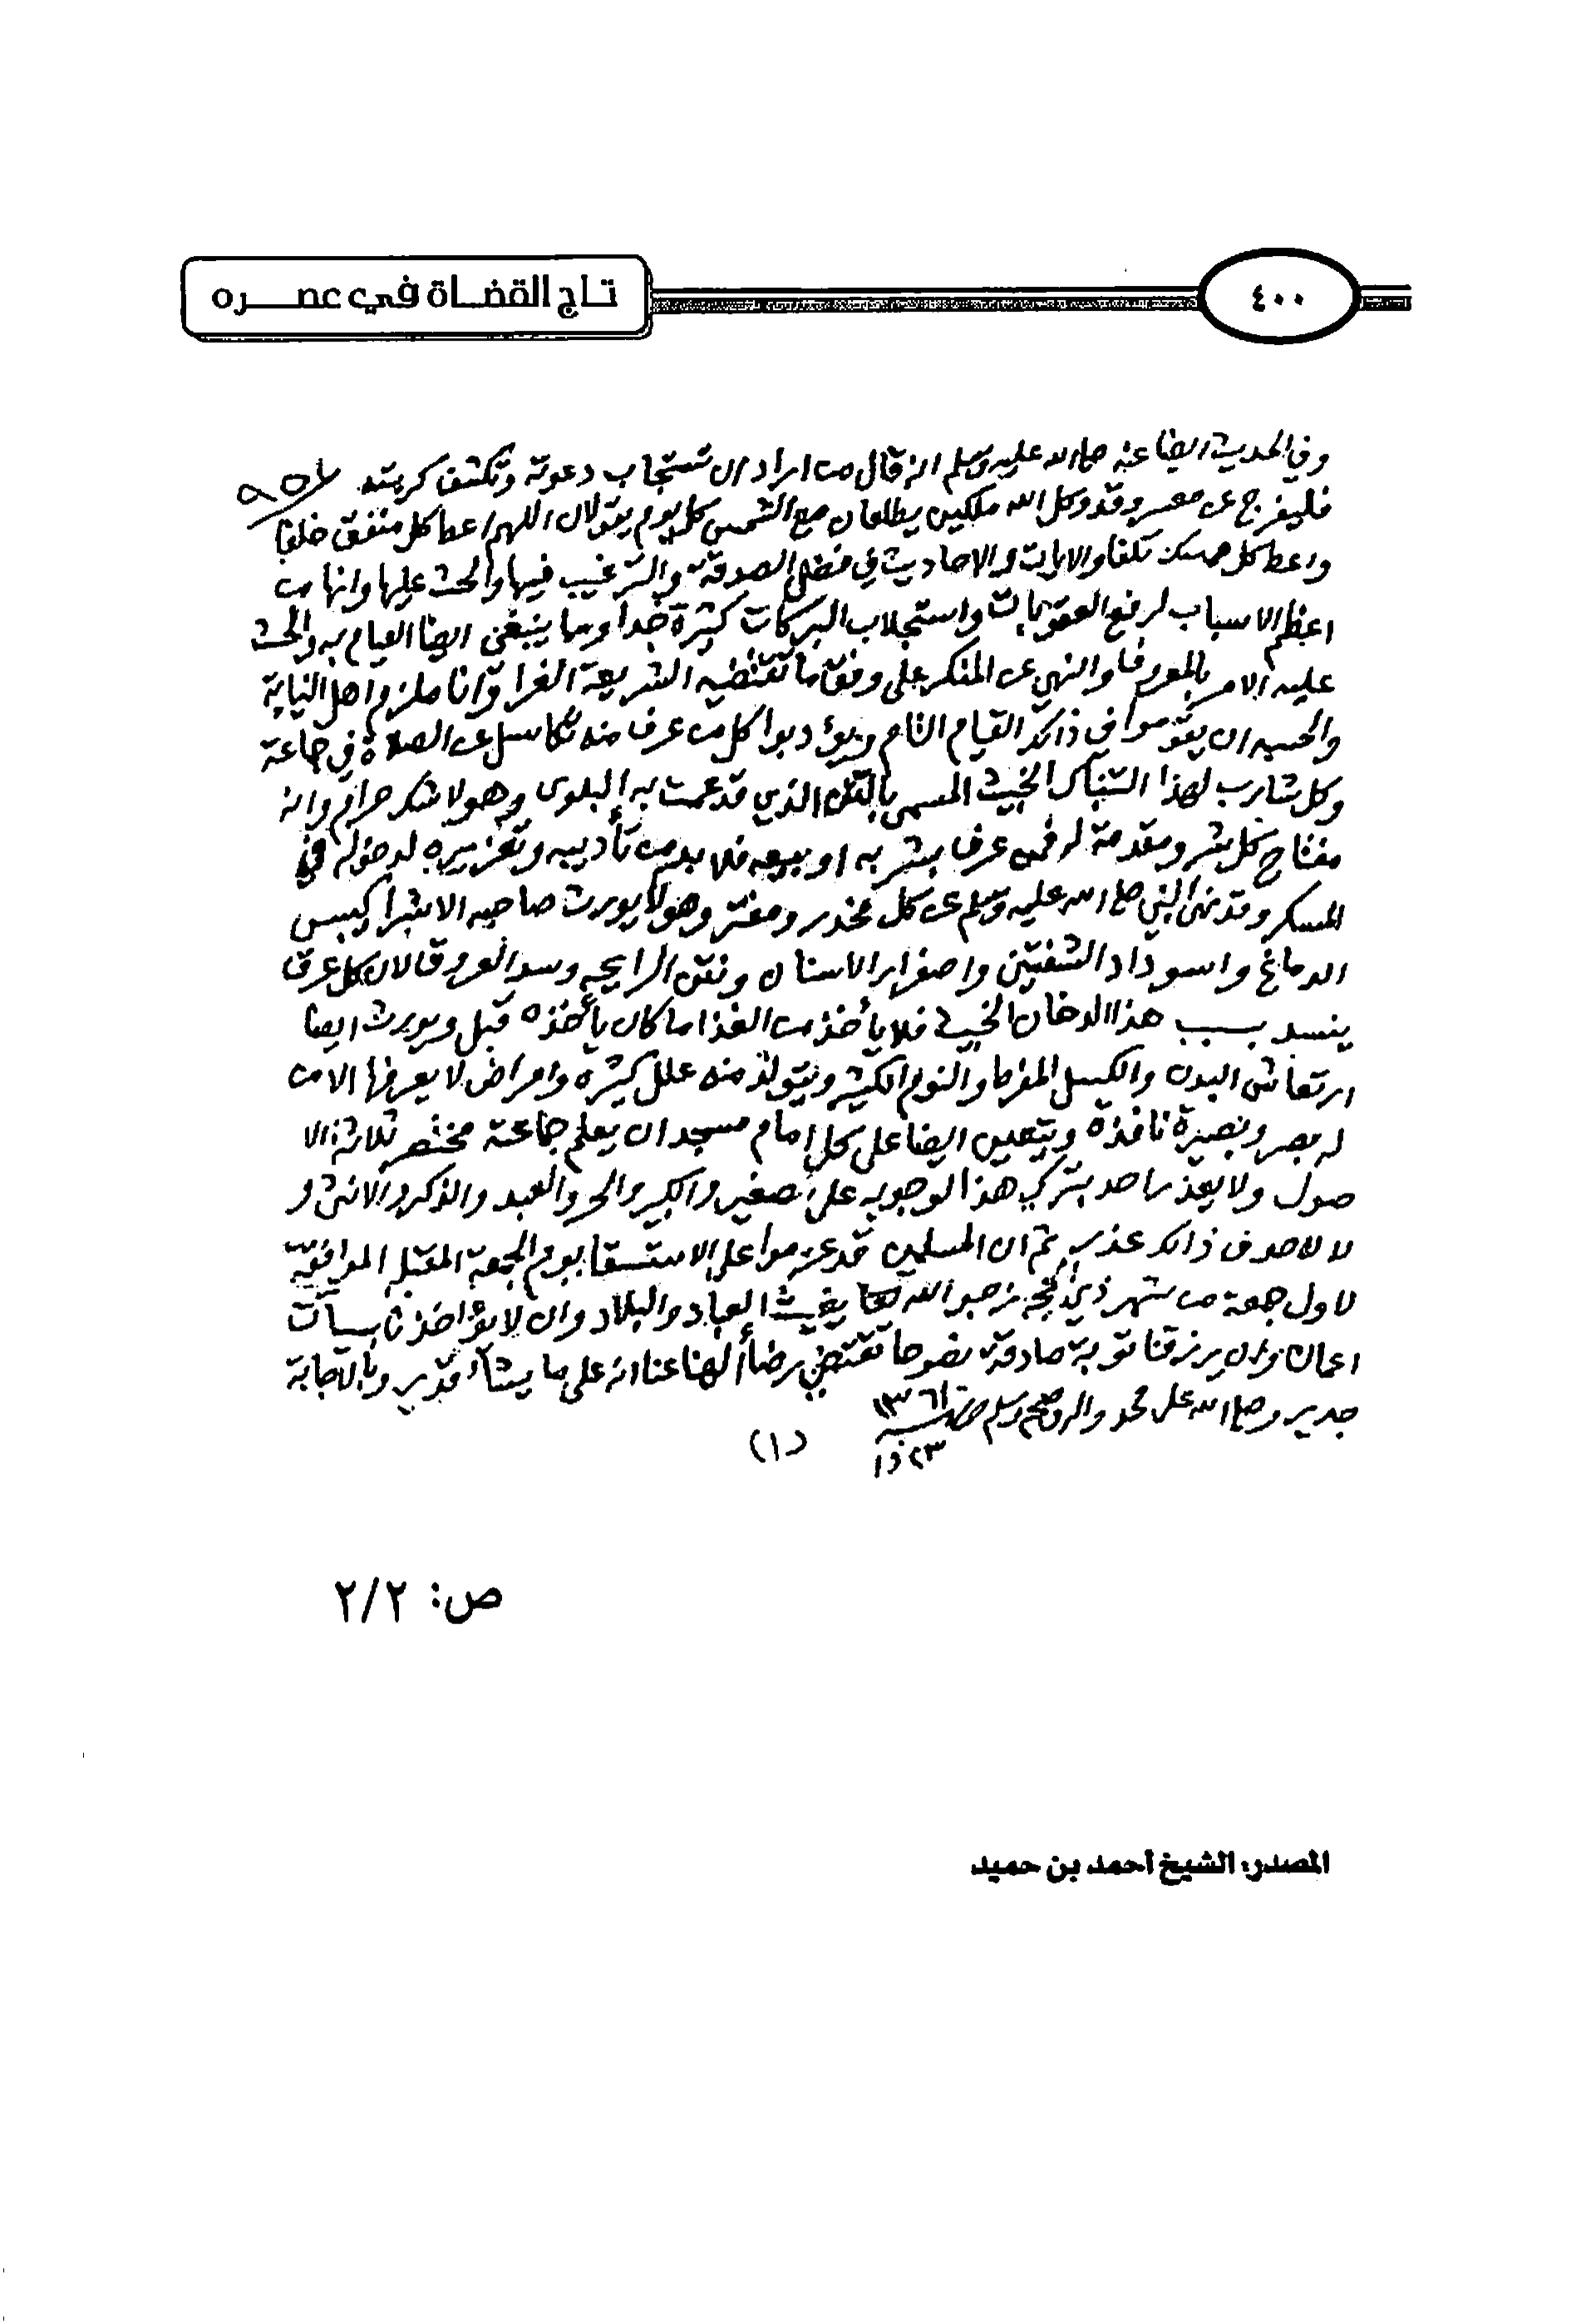 تاج القضاة في عصره
٤٠٠
وفي الحديث ايضا عنه صلى الله عليه وسلم انه قال من اراد ان تستجاب دعوته وتكشف كربته
فليفرج عن معسر وقد وكل الله ملكين يطلعان مع الشمس كل يوم يقولان اللهم اعط كل منفق خلفا
واعط كل ممسك تلفا والايات والاحاديث في فضل الصدقة والترغيب فيها والحث عليها وانها من
اعظم الاسباب لرفع العقوبات واستجلاب البركات كثيرة جدا ومما ينبغي ايضا القيام به والحث
عليه الامر بالمعروف والنهي عن المنكر على وفق ما تقتضيه الشريعة الغرا وانا ملزم اهل النيابة
والحسبه ان يقوموا في ذالك القيام التام ويؤدبوا كل من عرف منه تكاسل عن الصلاة في جماعة
وكل شارب لهذا التنباك الخبيث المسمى بالتتن الذي قد عمت به البلوى وهو لا شك حرام وانه
مفتاح كل شر ومقدمة له فمن عرف بشربه او بيعه فلا بد من تأديبه وتعزيره لدخوله في
المسكر وقد نهى النبي صلى الله عليه وسلم عن كل مخدر ومفتر وهو لا يورث صاحبه الا شرا كيبس
الدماغ واسوداد الشفتين واصفرار الاسنان ونتن الرايحه وسد العروق لان كل عرق
ينسد بسبب هذا الدخان الخبيث فلا يأخذ من الغذا ما كان يأخذه قبل ويورث ايضا
ارتعاش البدن والكسل المفرط والنوم الكثير ويتولد منه علل كثيره وامراض لا يعرفها الا من
له بصر وبصيرة نافذه ويتعين ايضا على كل امام مسجد ان يعلم جماعته مختصر ثلاثة الا
صول ولا يعذر احد بترك هذا لوجوبه على الصغير والكبير والحر والعبد والذكر والانثى و
لا لاحد في ذالك عذر ثم ان المسلمين قد عزموا على الاستسقا يوم الجمعة المقبله الموافقة
لاول جمعة من شهر ذي الحجه نرجو الله تعا يغيث العباد والبلاد وان لا يؤاخذنا بسيآت
اعمالنا وان يرزقنا توبة صادقة نصوحا تقتضي رضاء الهنا عنا انه على ما يشآء قدير وبالاجابة
جدير وصلى الله على محمد واله وصحبه وسلم سنة ١٣٦١
٢٣ ذا
(١)
ص: ٢/٢
المصدر: الشيخ أحمد بن حميد